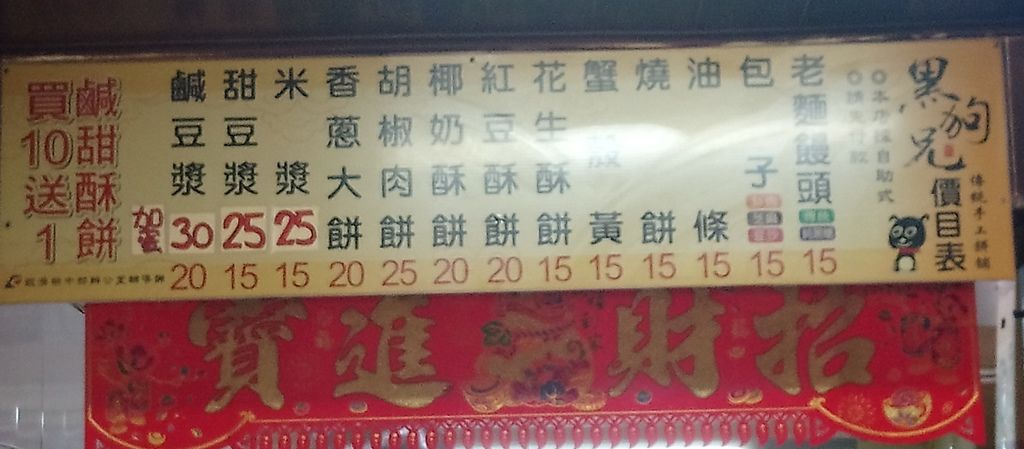 黑狗兄
傳統手工餅舖
價目表
本店採自助式
請先付款
老麵饅頭 15
包子 15
油條 15
燒餅 15
蟹殼黃 15
花生酥餅 15
紅豆酥餅 20
椰奶酥餅 20
胡椒肉餅 25
香蔥大餅 20
米漿 25 15
甜豆漿 25 15
鹹豆漿 30 20
加蛋
鹹甜酥餅
買10送1
招財進寶